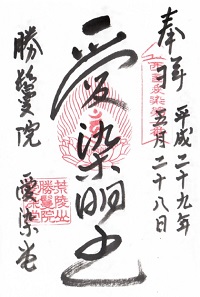 奉拝 平成二十九年
五月二十八日
愛染明王
勝鬘院 愛染堂
荒陵山
勝鬘院
愛染堂